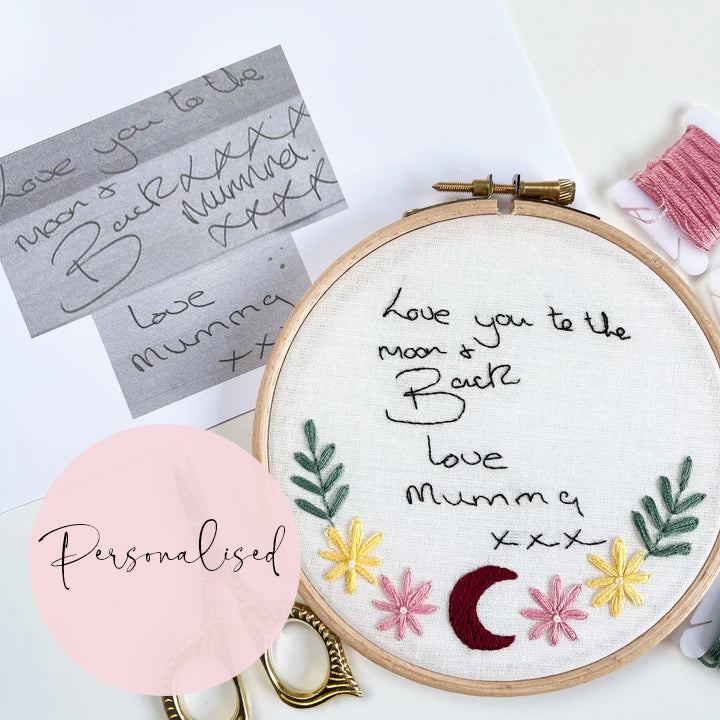 Love you to the
moon & xxxx
Back Mumma.
xxxx
Love
mumma
xx
Love you to the
moon &
Back
love
mumma
xxx
Personalised